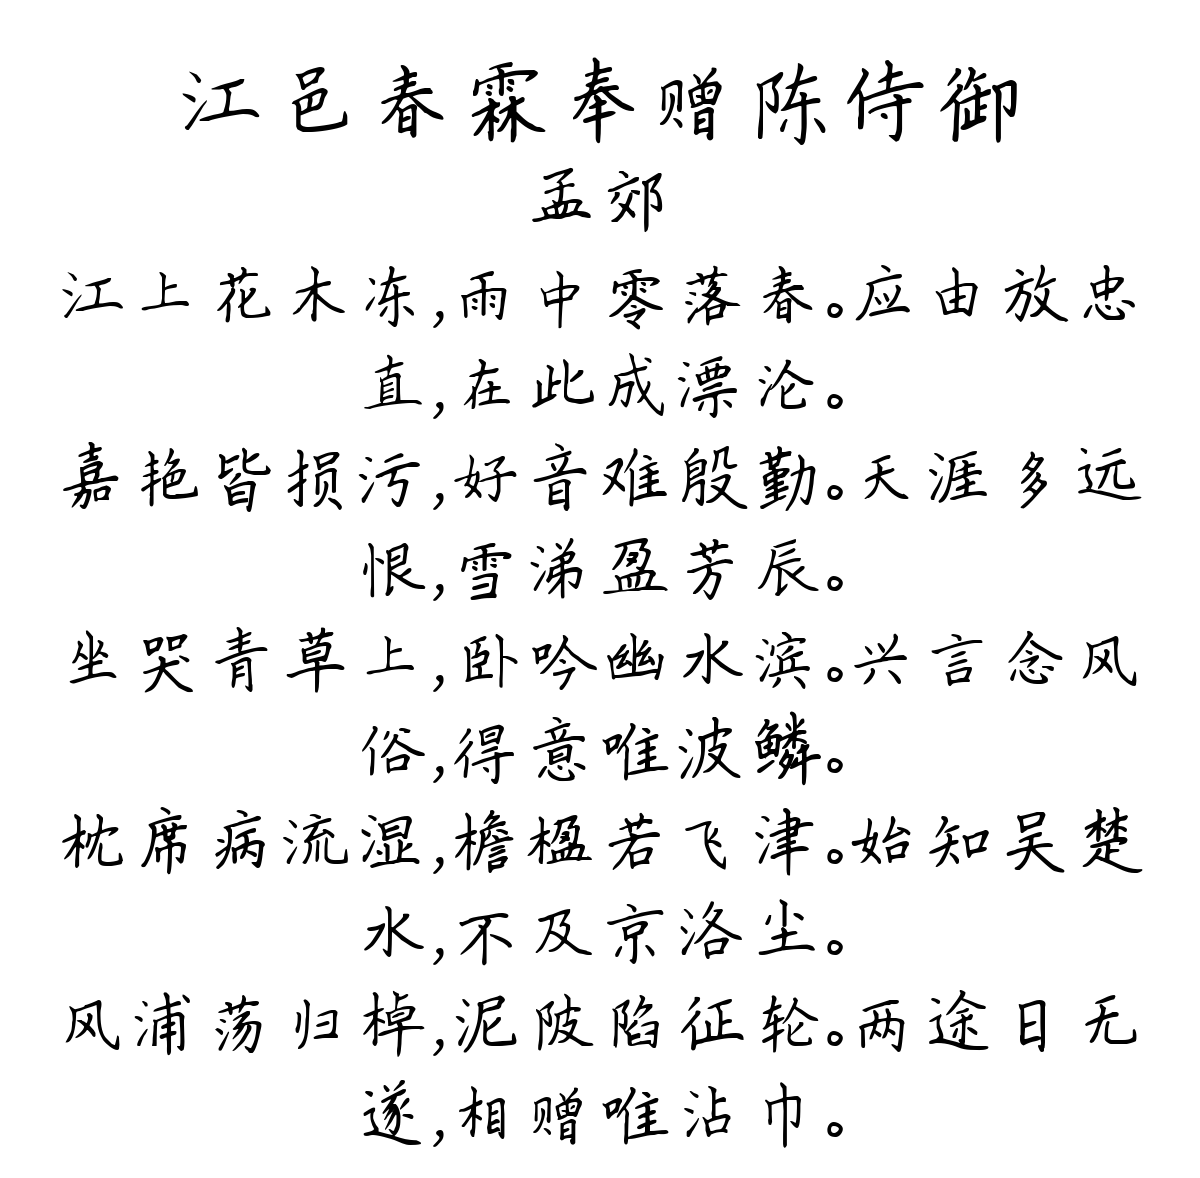 江邑春霖奉赠陈侍御
孟郊
江上花木冻,雨中零落春。应由放忠
直,在此成漂沦。
嘉艳皆损污,好音难殷勤。天涯多远
恨,雪涕盈芳辰。
坐哭青草上,卧吟幽水滨。兴言念风
俗,得意唯波鳞。
枕席病流湿,檐楹若飞津。始知吴楚
水,不及京洛尘。
风浦荡归棹,泥陂陷征轮。两途日无
遂,相赠唯沾巾。